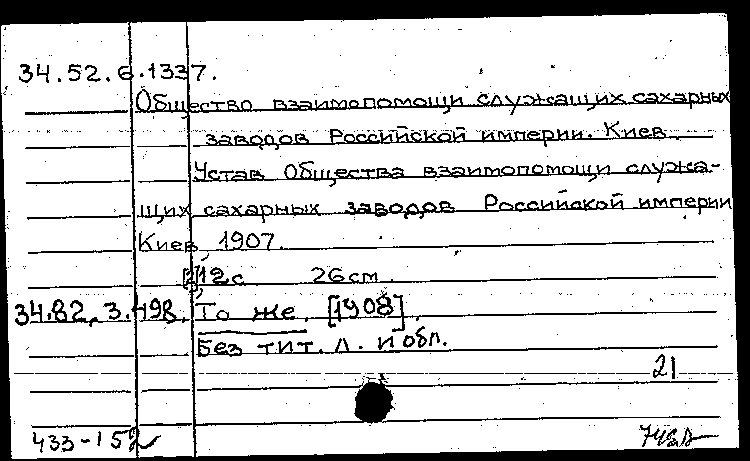 34.52.6.1337.
Общество взаимопомощи служащих сахарных
заводов Российской империи. Киев.
Устав Общества взаимопомощи служа-
щих сахарных заводов Российской империи
Киев, 1907.
[2],12с 26см.
34.82.3.498. То же. [1908].
Без тит. л. и обл.
21
433-152